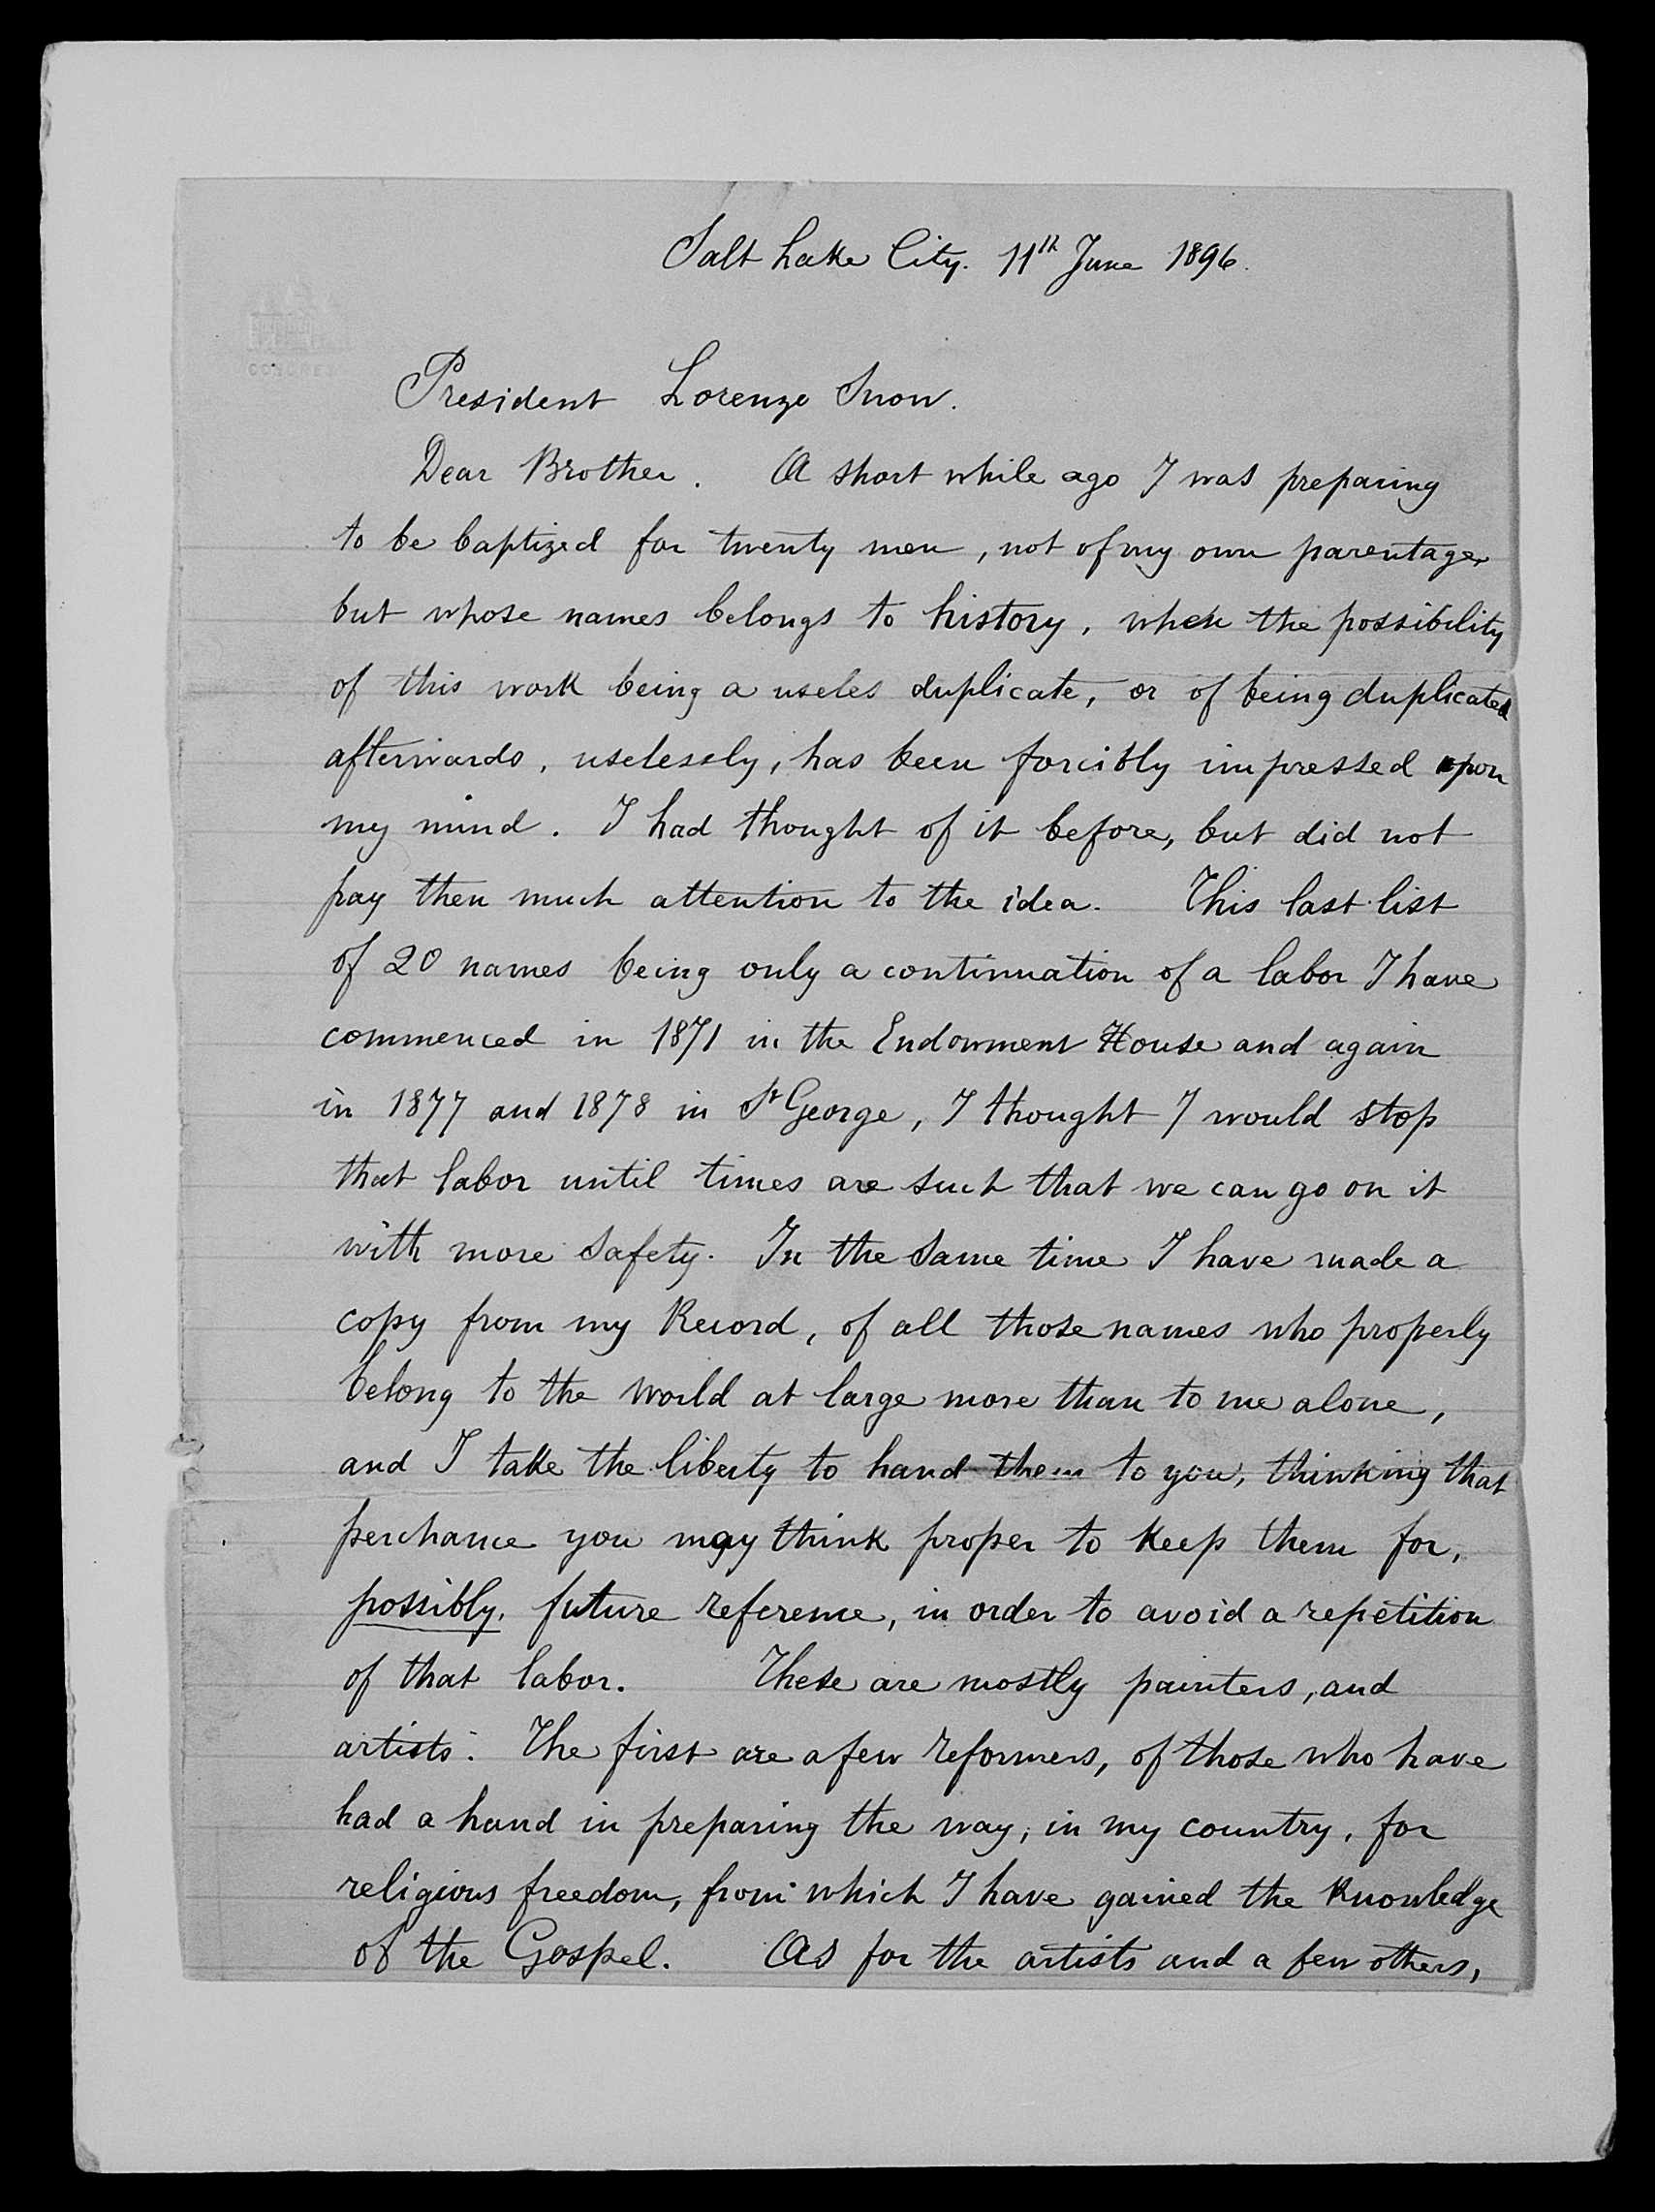 Salt Lake City. 11th June 1896.
CONGRESS
President Lorenzo Snow.
Dear Brother. A short while ago I was preparing
to be baptized for twenty men, not of my own parentage,
but whose names belongs to history, when the possibility
of this work being a useles duplicate, or of being duplicated
afterwards, uselessly, has been forcibly impressed upon
my mind. I had thought of it before, but did not
pay then much attention to the idea. This last list
of 20 names being only a continuation of a labor I have
commenced in 1871 in the Endowment House and again
in 1877 and 1878 in St George, I thought I would stop
that labor until times are such that we can go on it
with more safety. In the same time I have made a
copy from my Record, of all those names who properly
belong to the world at large more than to me alone,
and I take the liberty to hand them to you, thinking that
perchance you may think proper to keep them for,
possibly, future reference, in order to avoid a repetition
of that labor. These are mostly painters, and
artists. The first are a few reformers, of those who have
had a hand in preparing the way, in my country, for
religious freedom, from which I have gained the knowledge
of the Gospel. As for the artists and a few others,